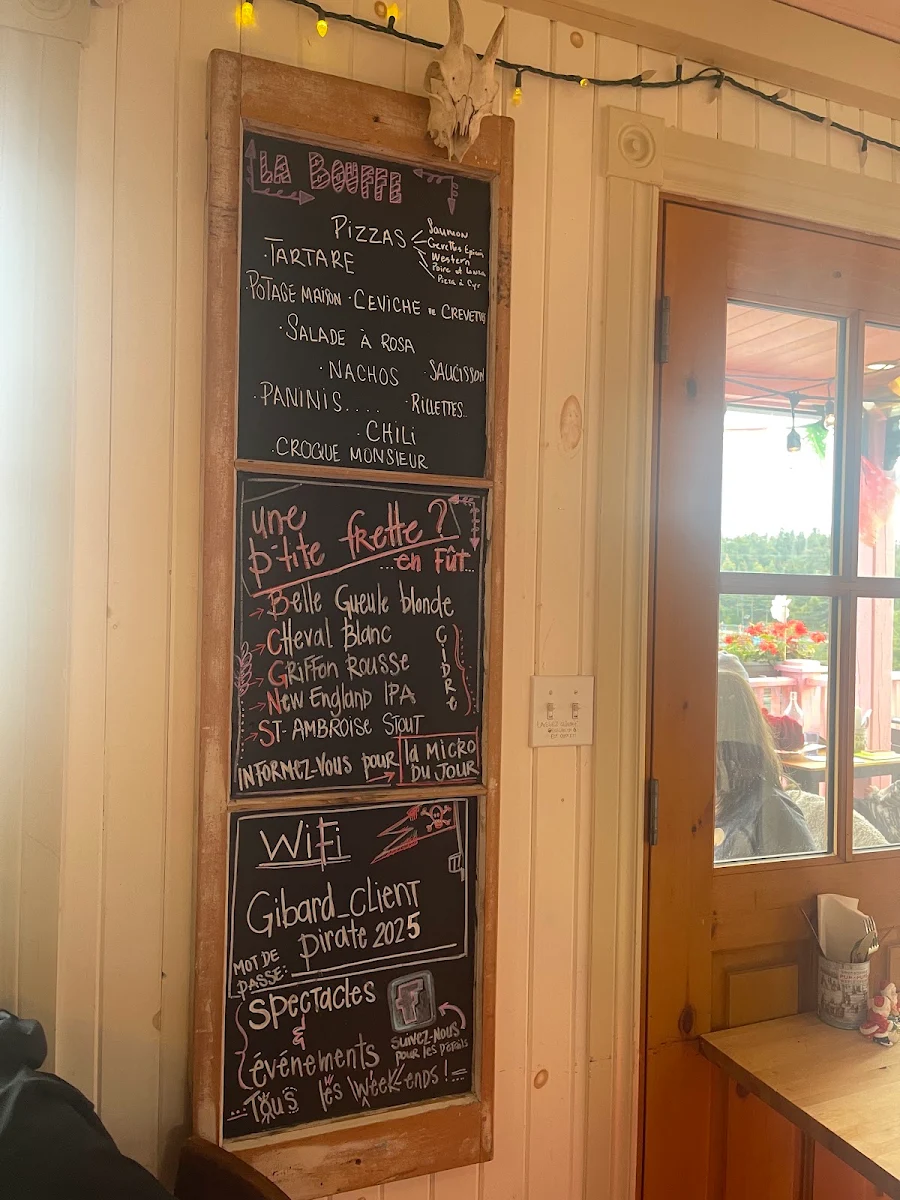 LA BOUFFE
PIZZAS
Saumon
Crevettes
Western
Poire et
Pizza à Cyr
·TARTARE
·POTAGE MAISON ·CEVICHE DE CREVETTES
·SALADE À ROSA
·NACHOS ·SAUCISSON
·PANINIS.... ·RILLETTES...
·CHILI
·CROQUE MONSIEUR
une
p'tite frette?
...en Fût...
→ Belle Gueule blonde
→ CHeval Blanc
→ GRiffon Rousse
→ New England IPA
→ ST-AMBROISE STOUT
CIDRE
INFORMEZ-VOUS POUR la MICRO
DU JOUR
WiFi
Gibard_Client
MOT DE
PASSE: pirate 2025
Spectacles
&
événements
...Tous les week-ends!
f
SUIVEZ-NOUS
POUR LES DÉTAILS